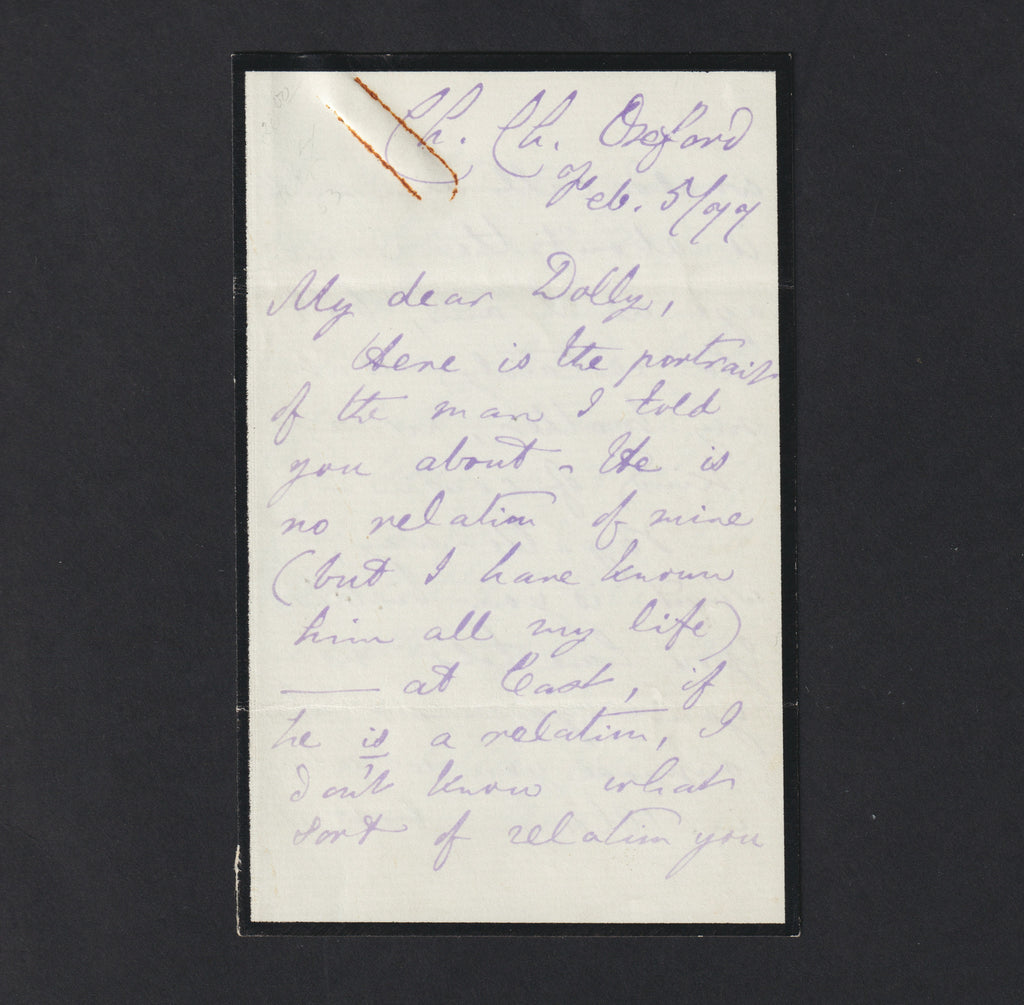 Ch. Ch. Oxford
Feb. 5/77
My dear Dolly,
Here is the portrait
of the man I told
you about. He is
no relation of mine
(but I have known
him all my life)
— at least, if
he is a relation, I
don't know what
sort of relation you